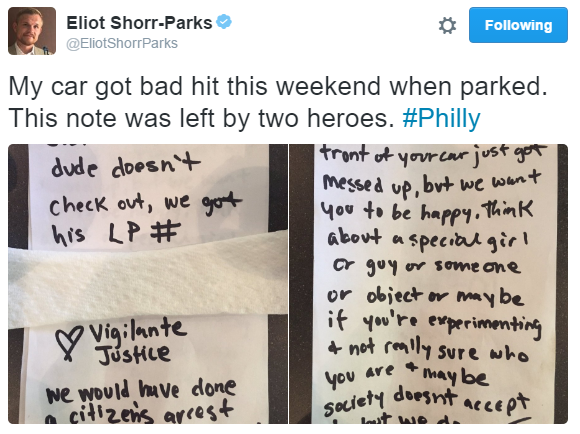 Eliot Shorr-Parks
@EliotShorrParks
Following
My car got bad hit this weekend when parked.
This note was left by two heroes. #Philly
dude doesn't
check out, we got
his LP #
♡ Vigilante
Justice
we would have done
a citizen's arrest
front of your car just got
messed up, but we want
you to be happy. Think
about a special girl
or guy or someone
or object or maybe
if you're experimenting
+ not really sure who
you are + maybe
society doesn't accept
but we do